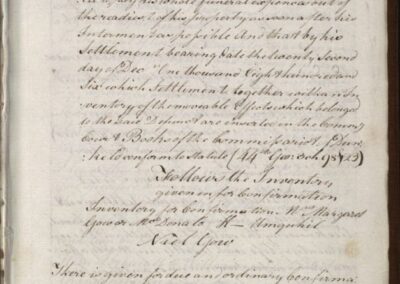 to pay his whole funeral expences out of
the readiest of his property as soon after his
Interment as possible And that by his
Settlement bearing date the twenty Second
day of Decr One thousand Eight hundred and
Six which Settlement together with an In-
ventory of the moveable Effects which belonged
to the said Defunct are inserted in the Commy
Court Books of the Commissariot of Dun-
keld conform to Statute (44th Geo: 3 ch 98
Follows the Inventory
given in for Confirmation
Inventory for Confirmation Margaret
Gow or McDonald Umquhil
Niel Gow
There is given for due and ordinary Confirma